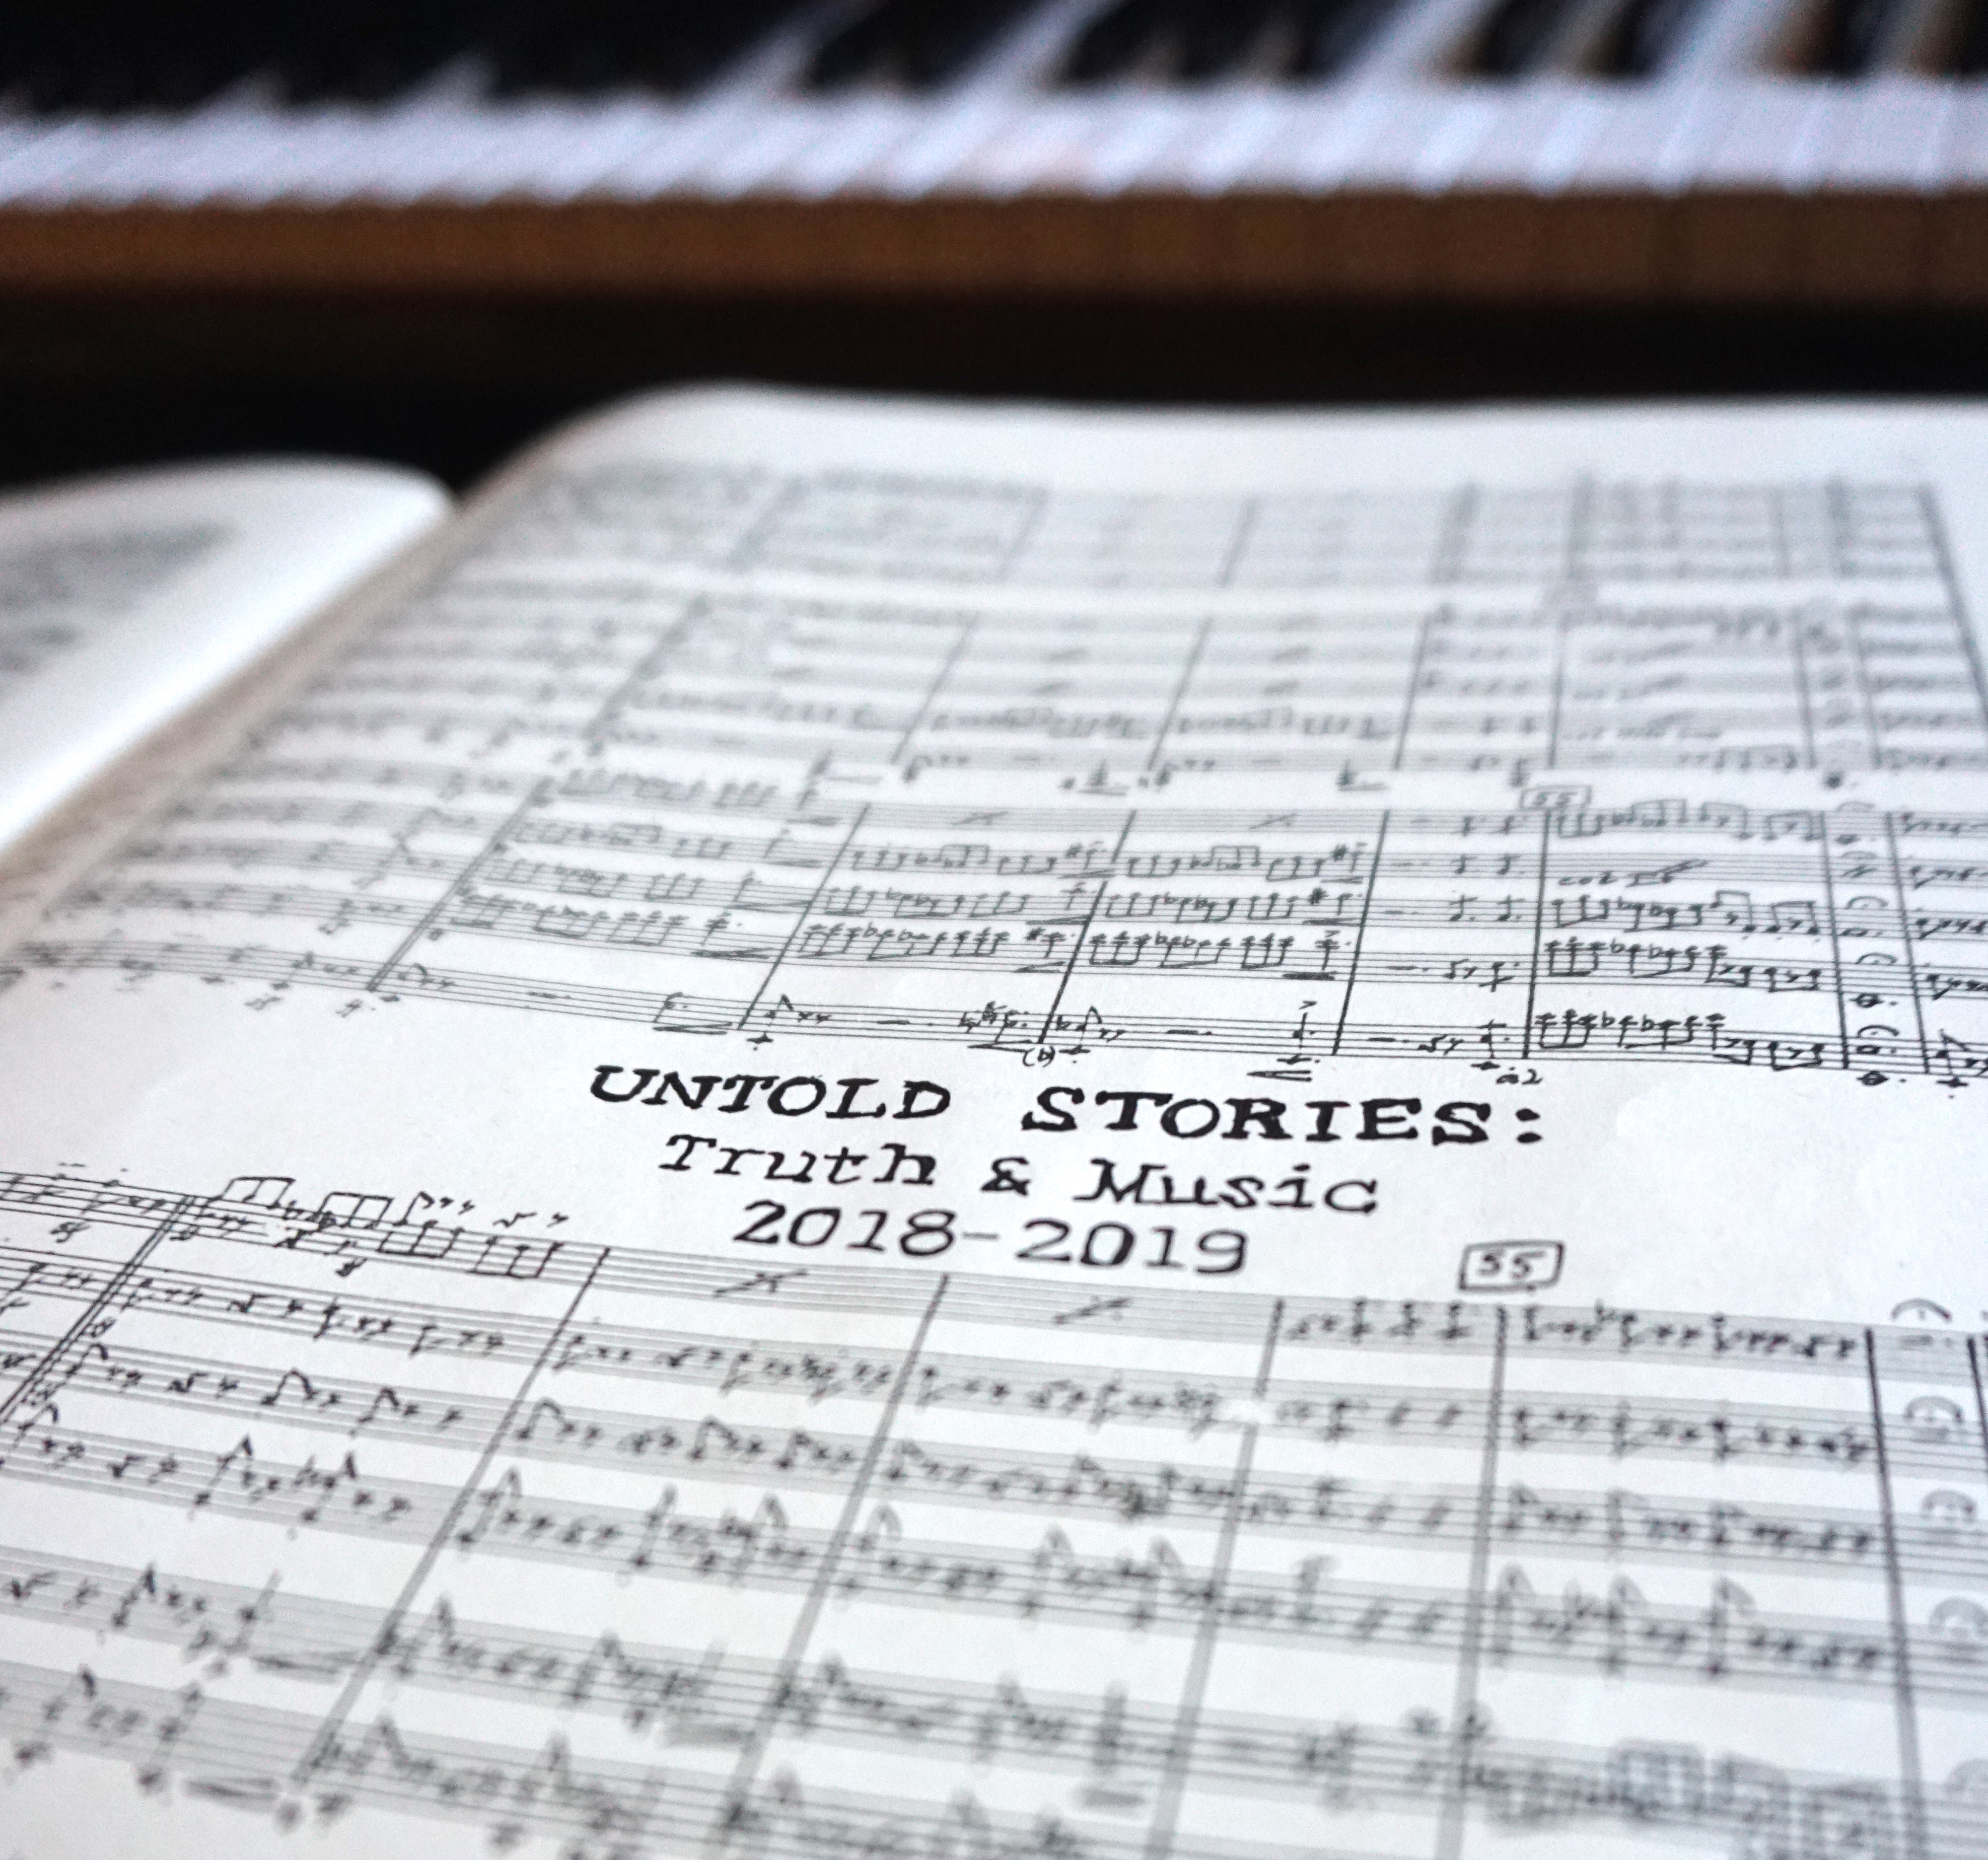 55
col I
a2
UNTOLD STORIES:
Truth & Music
2018-2019
55